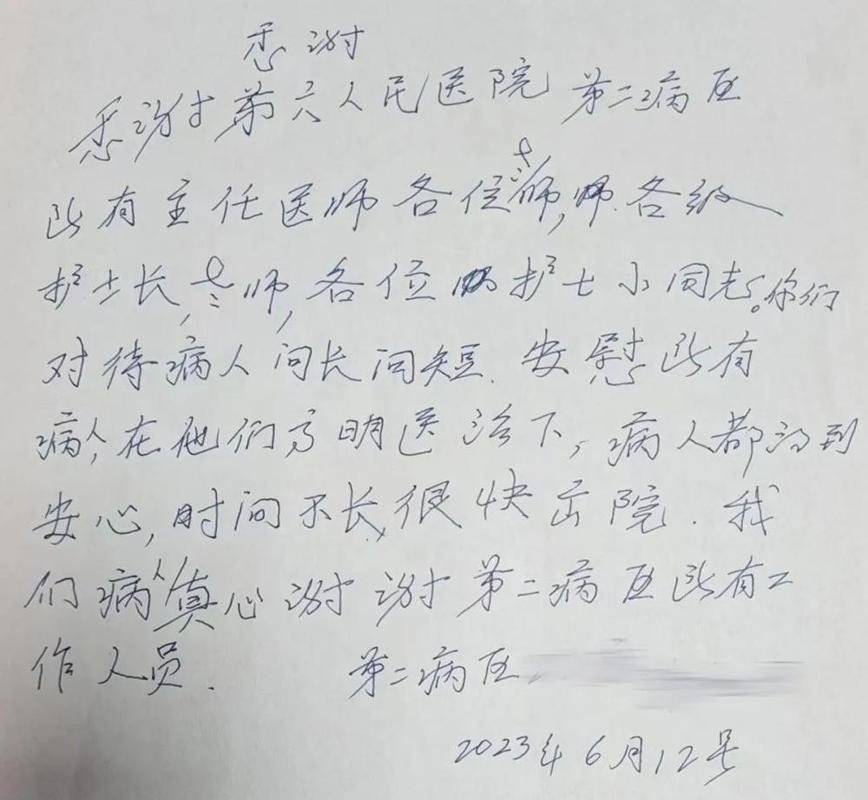 感谢
感谢第六人民医院第二病区
所有主任医师各位老师,师.各级
护士长,老师,各位护士小同志。你们
对待病人问长问短.安慰所有
病人,在他们高明医治下,病人都得到
安心,时间不长,很快出院.我
们病人真心谢谢第二病区所有工
作人员.
第二病区
2023年6月12号